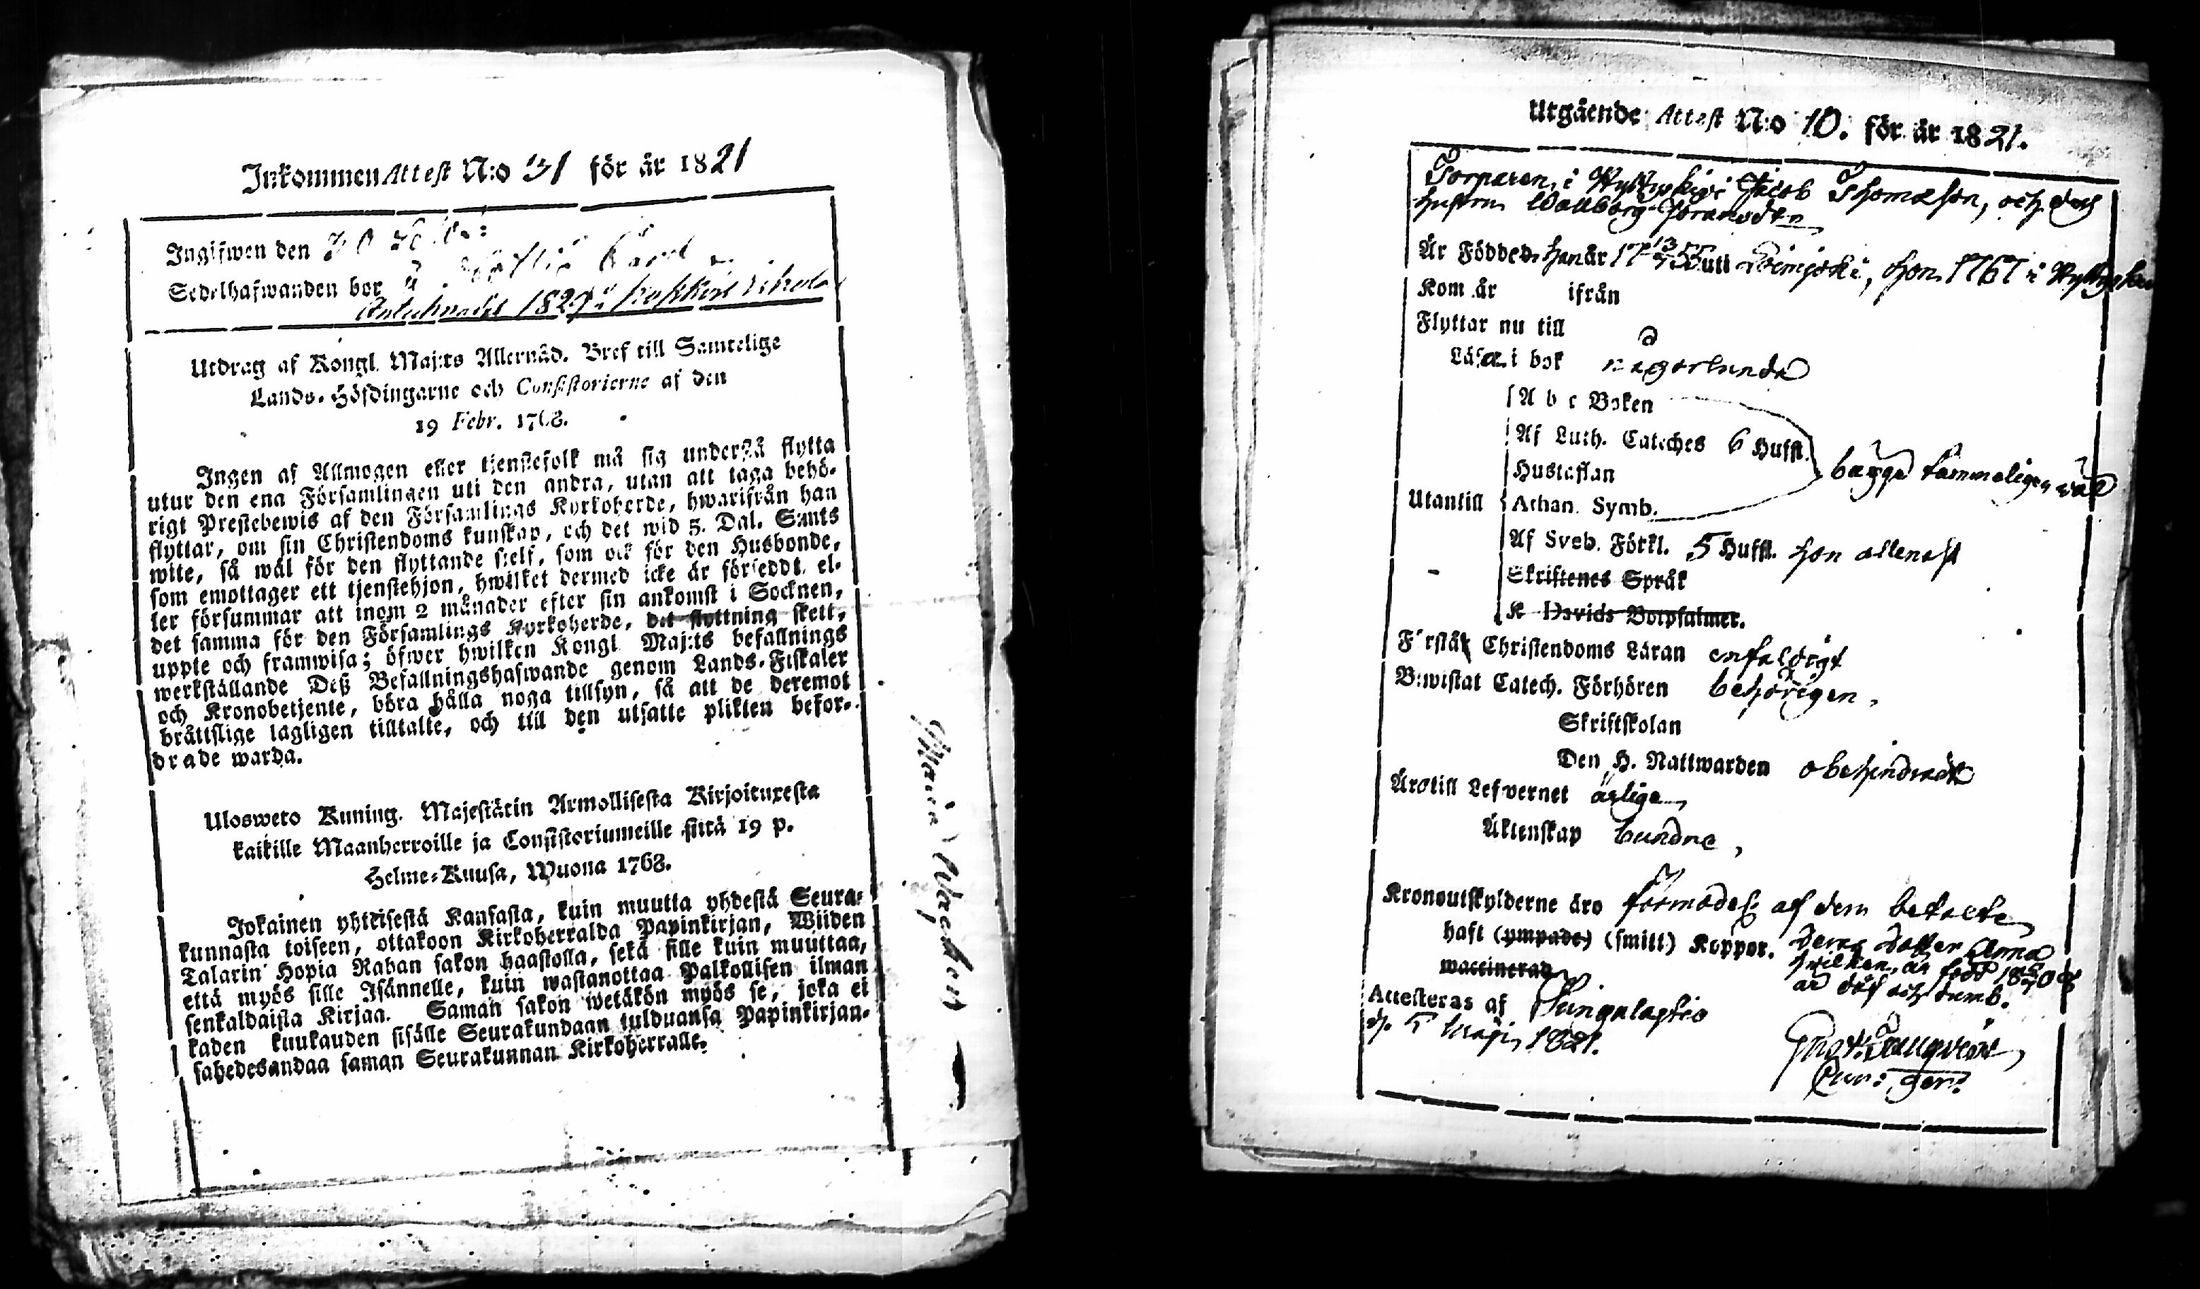 Inkommen Attest N:o 31 för år 1821
Ingifwen den 30
Sedelhafwanden bor
Antecknadt 1829
Utdrag af Kongl. Maj:ts Allernåd. Bref till Samtelige
Lands-Höfdingarne och Consistorierne af den
19 Febr. 1768.
Ingen af Allmogen eller tjenstefolk må sig understå flytta
utur den ena Församlingen uti den andra, utan att taga behö-
rigt Prestebewis af den Församlings Kyrkoherde, hwarifrån han
flyttar, om sin Christendoms kunskap, och det wid 5. Dal. S:mts
wite, så wäl för den flyttande sielf, som ock för den Husbonde,
som emottager ett tjenstehjon, hwilket dermed icke är förseddt el-
ler försummar att inom 2 månader efter sin ankomst i Socknen,
det samma för den Församlings Kyrkoherde, det flyttning skett,
uppte och framwisa; öfwer hwilken Kongl Maj:ts befallnings
werkställande Deß Befallningshafwande genom Lands-Fiskaler
och Kronobetjente, böra hålla noga tillsyn, så att de deremot
bråttslige lagligen tilltalte, och till den utsatte plikten befor-
drade warda.
Ulosweto Kuning. Majestätin Armollisesta Kirjoituxesta
kaikille Maanherroille ja Consistoriumeille siitä 19 p.
Helme-Kuusa, Wuona 1768.
Jokainen yhteisestä Kansasta, kuin muutta yhdestä Seura-
kunnasta toiseen, ottakoon Kirkoherralda Papinkirjan, Wiiden
Talarin Hopia Rahan sakon haastolla, sekä sille kuin muuttaa,
että myös sille Isännelle, kuin wastanottaa Palkollisen ilman
senkaldaista Kirjaa. Saman sakon wetäkön myös se, joka ei
kaden kuukauden sisälle Seurakundaan tulduansa Papinkirjan-
sahedesandaa saman Seurakunnan Kirkoherralle.
Maria
Utgående Attest N:o 10. för år 1821.
Torparen i Hyttyskije Jacob Thomasson, och des
hustru Wallborg Göransdr
Är Födde han år 17 13/7 55 uti Loimjoki, hon 1767 i
Kom år ifrån
Flyttar nu till
Läsa i bok någorlunda
A b c Boken
Af Luth. Cateches 6 Hufst.
Hustaflan
bägge tämmeligen wäl
Utantill
Athan. Symb.
Af Sveb. Förkl. 5 Hufst. hon allenast
Skriftenes Språk
K Davids Botpsalmer.
Förstå Christendoms Läran enfaldigt
Bewistat Catech. Förhören behörigen,
Skriftskolan
Den H. Nattwarden obehindradt
Äro till Lefvernet ärlige
Äktenskap bundne,
Kronoutskylderne äro förmodel. af dem betalte
haft (ympade) (smitt) Koppor. Deras dotter Anna
waccinerad hwilken är född 18
är döf och dumb.
Attesteras af Pungalaitio
d. 5 Maji 1821.